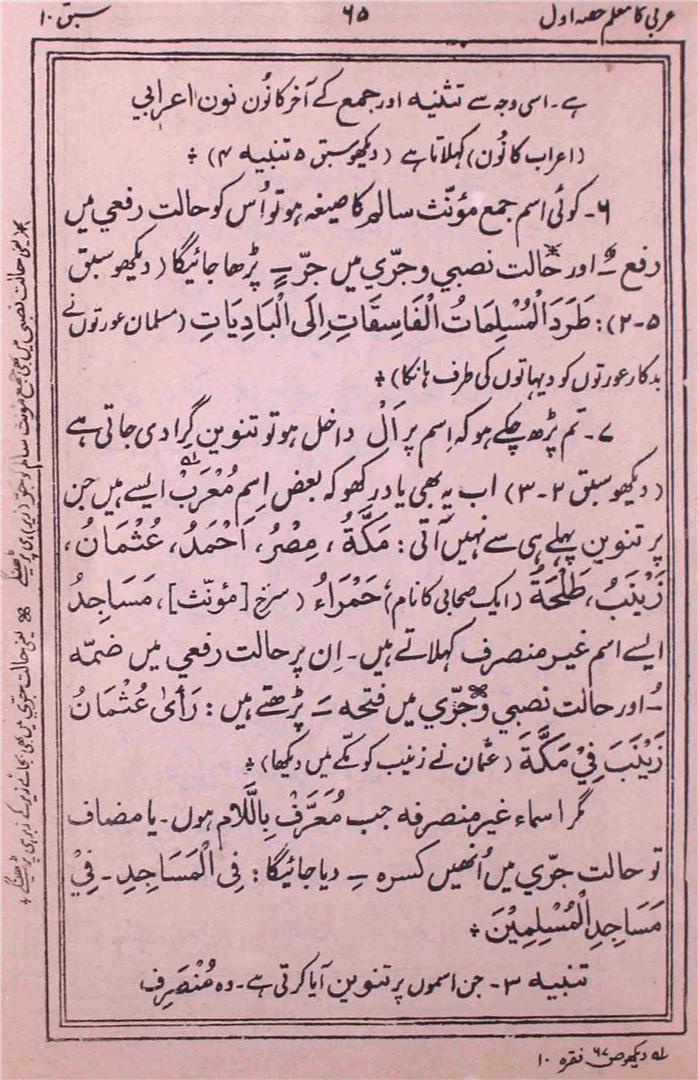 عربی کا معلم حصہ اول ۶۵ سبق ۱۰
ہے۔ اسی وجہ سے تثنیہ اور جمع کے آخر کا نُون نون اعرابي
(اعراب کا نُون) کہلاتا ہے (دیکھو سبق ۵ تنبیہ ۴) ÷
۶۔ کوئی اسم جمع مؤنّث سالم کا صیغہ ہو تو اُس کو حالت رفعي میں
رفع ـُـ اور حالت نصبي و جرّي میں جرّ ـٍـ پڑھا جائیگا (دیکھو سبق
۵-۲): طَرَدَ الْمُسْلِمَاتُ الْفَاسِقَاتِ اِلَى الْبَادِيَاتِ (مسلمان عورتوں نے
بدکار عورتوں کو دیہاتوں کی طرف ہانکا) ÷
۷۔ تم پڑھ چکے ہو کہ اِسم پر اَلْ داخل ہو تو تنوین گرا دی جاتی ہے
(دیکھو سبق ۲-۳) اب یہ بھی یاد رکھو کہ بعض اِسم مُعْرَبْ ایسے ہیں جن
پر تنوین پہلے ہی سے نہیں آتی: مَكَّةُ، مِصْرُ، اَحْمَدُ، عُثْمَانُ،
زَيْنَبُ، طَلْحَةُ (ایک صحابی کا نام)، حَمْرَاءُ (سرخ [مؤنّث]، مَسَاجِدُ
ایسے اسم غیر منصرف کہلاتے ہیں۔ اِن پر حالت رفعي میں ضمّہ
ـُـ اور حالت نصبي و جرّي میں فتحہ ـَـ پڑھتے ہیں: رَأىٰ عُثْمَانُ
زَيْنَبَ فِيْ مَكَّةَ (عثمان نے زینب کو مکّے میں دیکھا) ÷
مگر اسماء غیر منصرفہ جب مُعَرَّفْ بِاللَّام ہوں۔ یا مضاف
تو حالت جرّي میں اُنھیں کسرہ ـِـ دیا جائیگا: فِي الْمَسَاجِدِ۔ فِيْ
مَسَاجِدِ الْمُسْلِمِيْنَ ÷
تنبیہ ۳۔ جن اسموں پر تنوین آیا کرتی ہے۔ وہ مُنْصَرِف
لہ دیکھو ص ۶۷ فقرہ ۱۰
※ یعنی حالت نصبی میں بھی جمع مؤنث سالم کو جرّ (زیر) ہی پڑھینگے
※ یعنی حالت جرّی میں بھی بجائے زیر کے زبر ہی پڑھینگے ÷